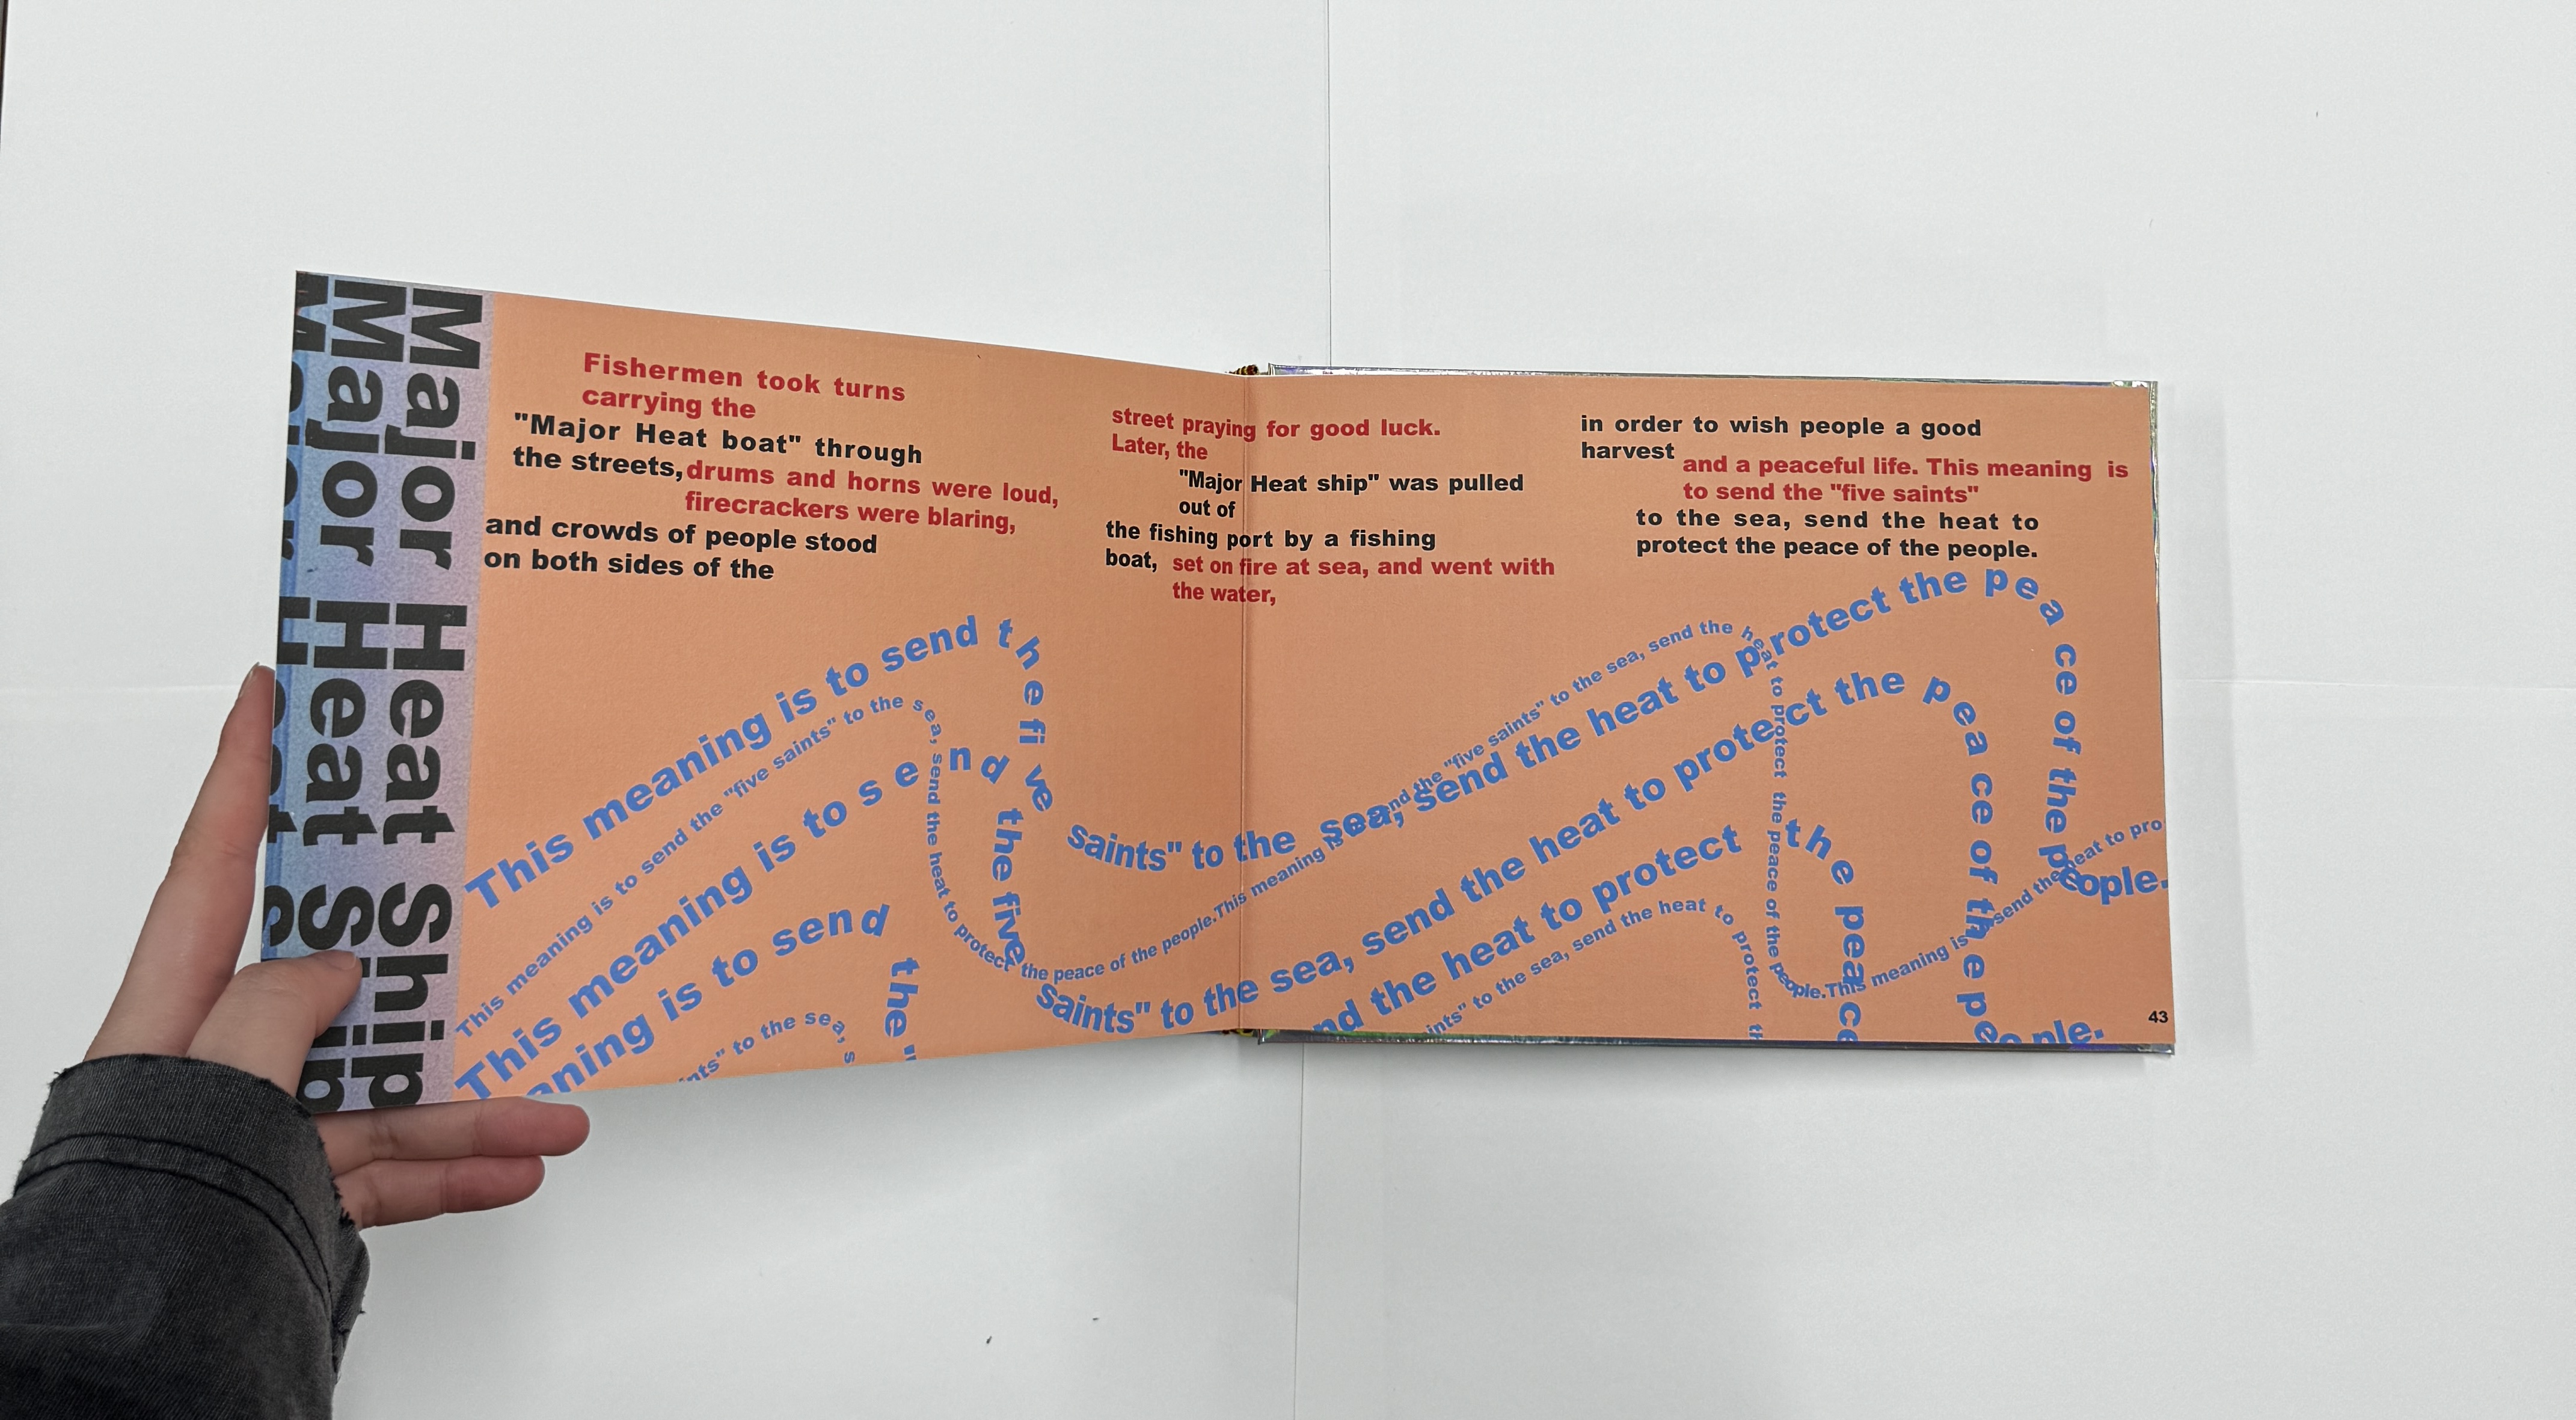 Major Heat Ship
Major Heat Ship
Fishermen took turns
carrying the
"Major Heat boat" through
the streets, drums and horns were loud,
firecrackers were blaring,
and crowds of people stood
on both sides of the
street praying for good luck.
Later, the
"Major Heat ship" was pulled
out of
the fishing port by a fishing
boat, set on fire at sea, and went with
the water,
in order to wish people a good
harvest
and a peaceful life. This meaning is
to send the "five saints"
to the sea, send the heat to
protect the peace of the people.
This meaning is to send the five saints" to the sea, send the heat to protect the peace of the people.
This meaning is to send the "five saints" to the sea, send the heat to protect the peace of the people.This meaning is send the "five saints" to the sea, send the heat to protect the peace of the people.This meaning is send the heat to pro
This meaning is to send the five saints" to the sea, send the heat to protect the peace of the people.
aning is to send the " nd the heat to protect the peace
ints" to the sea, s ints" to the sea, send the heat to protect th
43